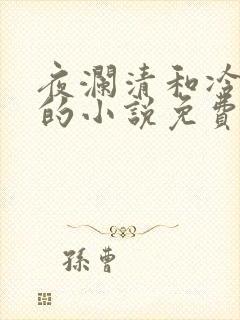 夜瀾清和冷
的小說免費
孫曹